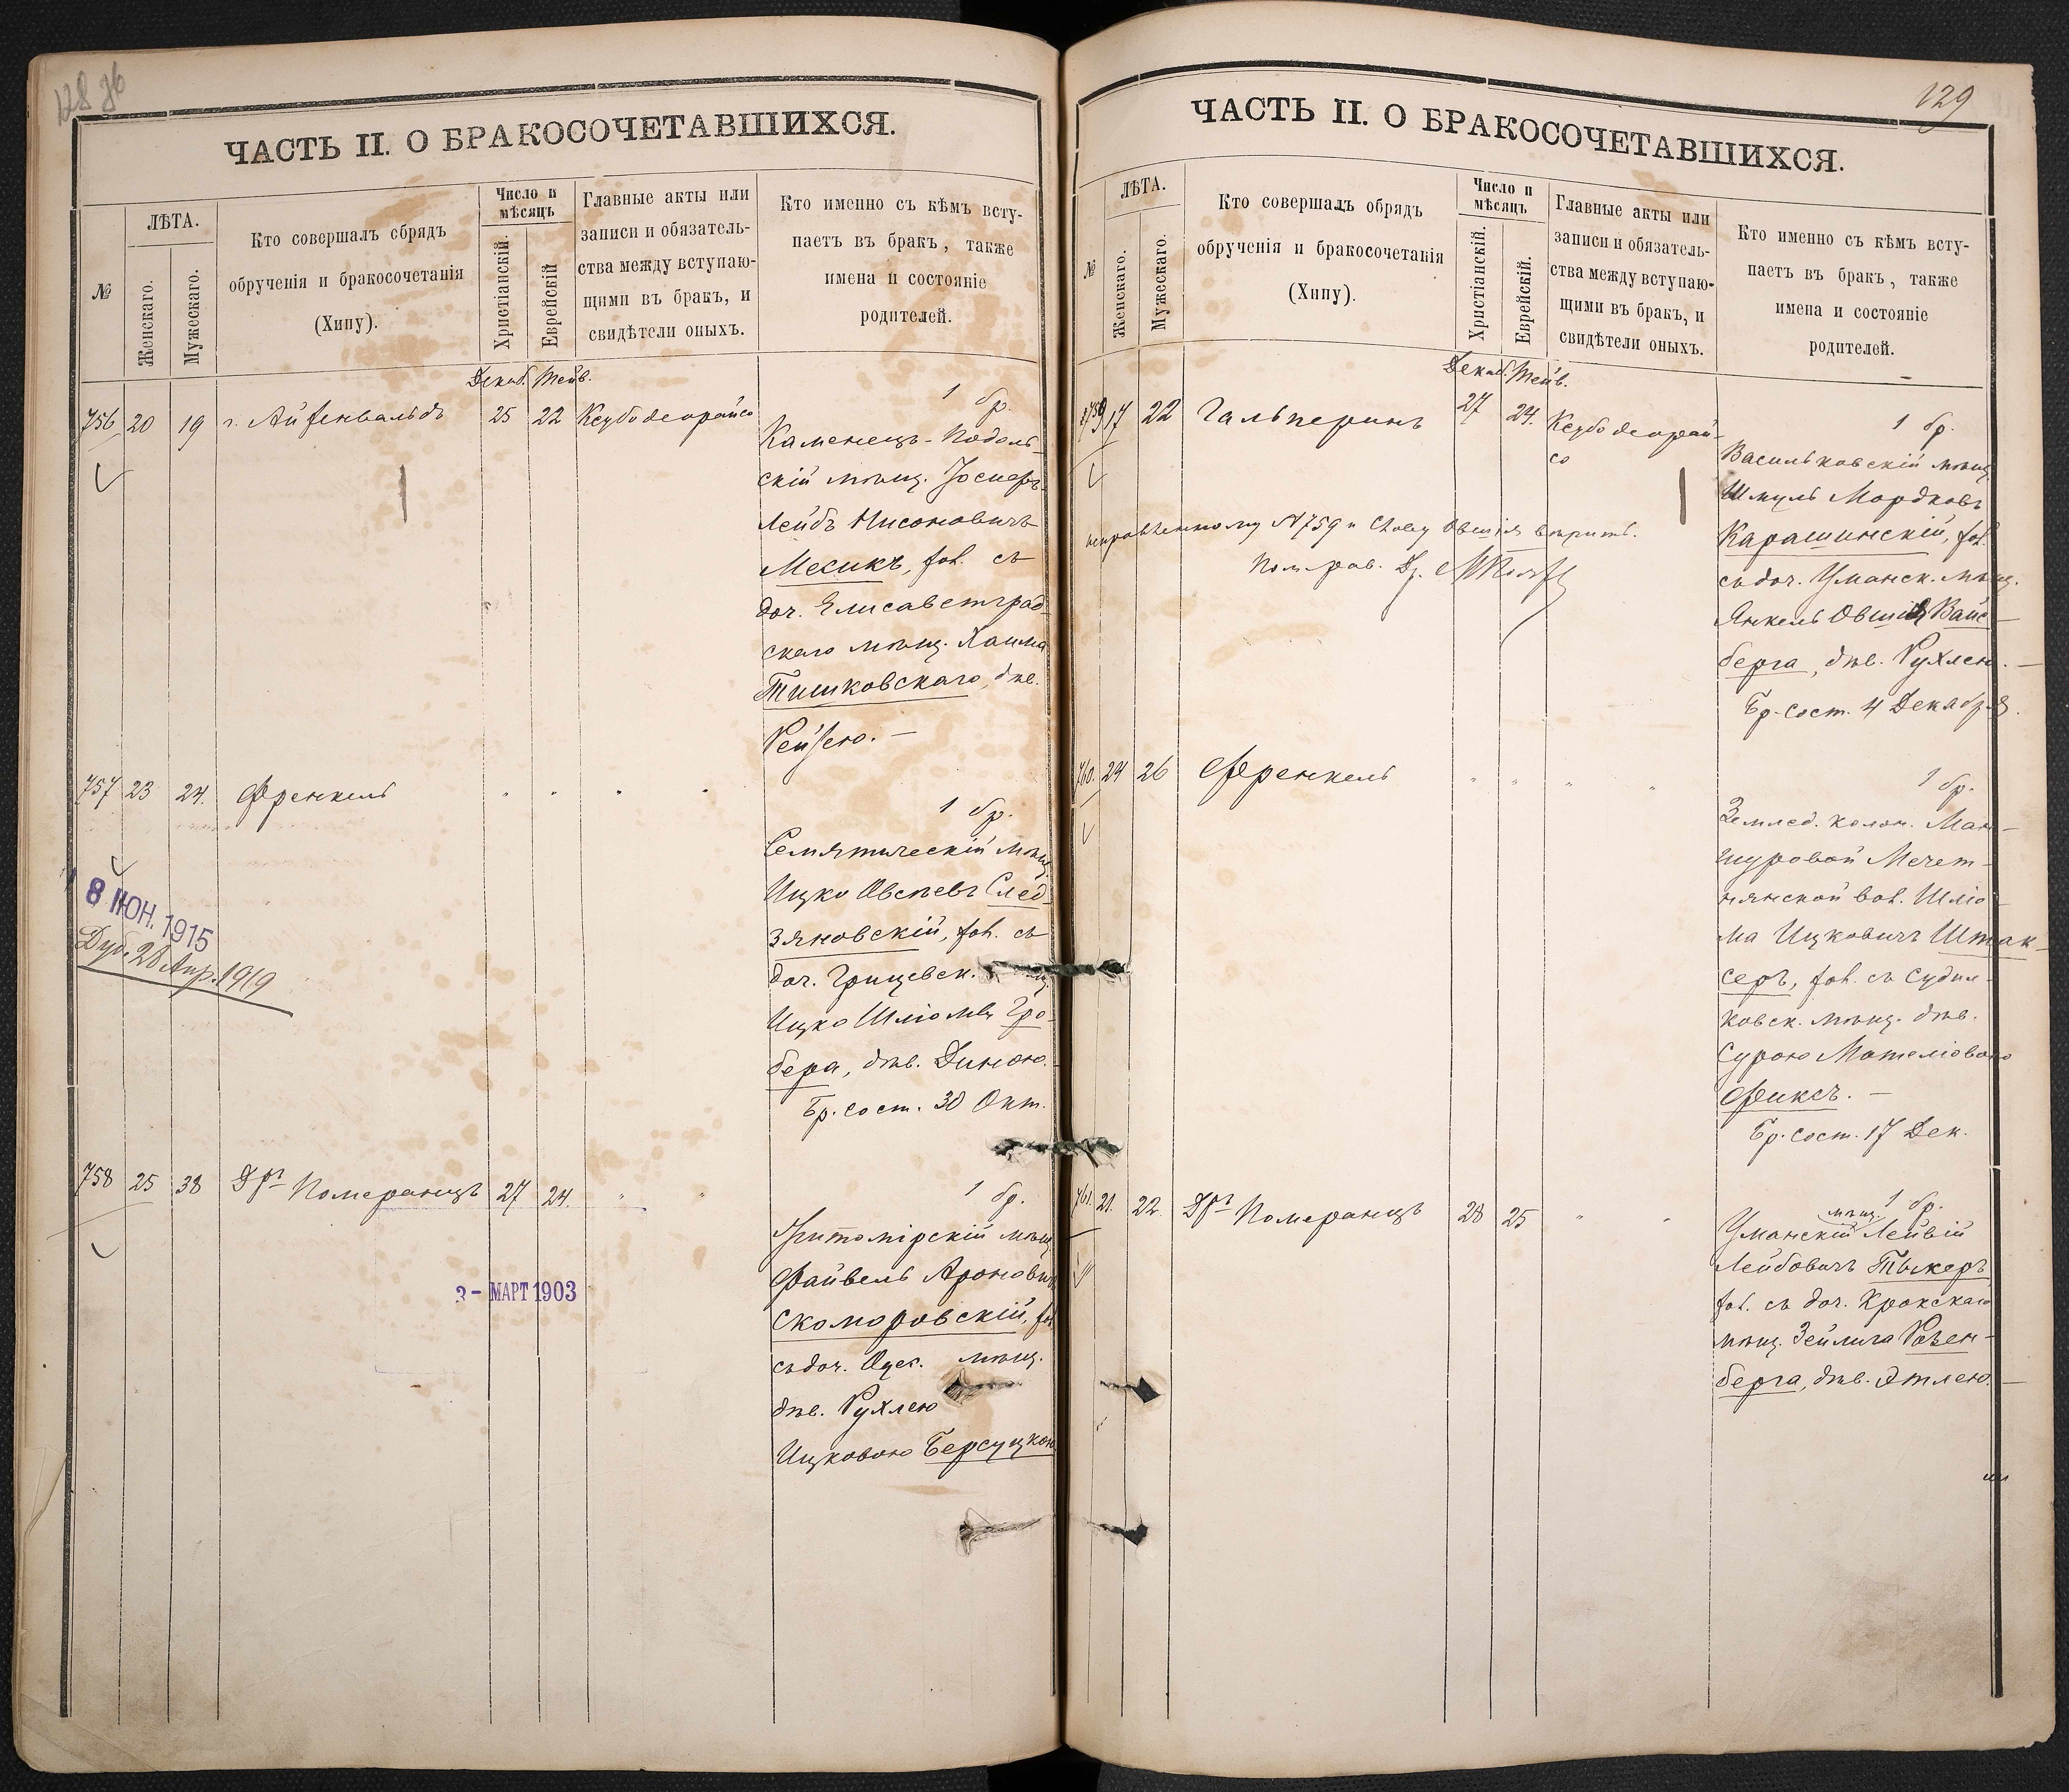 128 об
ЧАСТЬ II. О БРАКОСОЧЕТАВШИХСЯ.
№
ЛѢТА.
Женскаго.
Мужескаго.
Кто совершалъ обрядъ
обрученія и бракосочетанія
(Хипу).
Число и
мѣсяцъ
Христіанскій.
Еврейскій
Главные акты или
записи и обязатель-
ства между вступаю-
щими въ бракъ, и
свидѣтели оныхъ.
Кто именно съ кѣмъ всту-
паетъ въ бракъ, также
имена и состояніе
родителей.
Декаб. Тейв.
756 20 19 г. Айзенвальдъ 25 22 Ксубо деорайсо
1 бр.
Каменецъ-Подоль-
скій мѣщ. Іосифъ-
Лейбъ Нисоновичъ
Месикъ, хол. съ
доч. Елисаветград-
скаго мѣщ. Хаима
Тишковскаго, дѣв.
Рейзею. —
757 23 24. Френкель " " " "
8 ІЮН. 1915
Дуб. 28 Апр. 1919
1 бр.
Семятическій мѣщ.
Ицко Овсѣевъ След-
зяновскій, хол. съ
доч. Грицевск. мѣщ.
Ицко Шліомы Гро-
бера, дѣв. Диною.
Бр. сост. 30 Окт.
758 25 38 Дръ Померанцъ 27 24. " "
3 - МАРТ 1903
1 бр.
Житомірскій мѣщ.
Файвель Ароновичъ
Скоморовскій, хол.
съ доч. Одес. мѣщ.
дѣв. Рухлею
Ицковою Берсуцкою
129
ЧАСТЬ II. О БРАКОСОЧЕТАВШИХСЯ.
№
ЛѢТА.
Женскаго.
Мужескаго.
Кто совершалъ обрядъ
обрученія и бракосочетанія
(Хипу).
Число и
мѣсяцъ
Христіанскій.
Еврейскій.
Главные акты или
записи и обязатель-
ства между вступаю-
щими въ бракъ, и
свидѣтели оныхъ.
Кто именно съ кѣмъ всту-
паетъ въ бракъ, также
имена и состояніе
родителей.
Декаб. Тейв.
759 17 22 Гальперинъ 27 24. Ксубо деорай-
со
исправленному № 759 и слову Овшія вѣрить.
Пом. рав. Др.
1 бр.
Васильковскій мѣщ.
Шмуль Мордковъ
Карашинскій, хол.
съ доч. Уманск. мѣщ.
Янкель Овшія Вайс-
берга, дѣв. Рухлею. —
Бр. сост. 4 Декабря.
760. 24 26 Френкель " " " "
1 бр.
Землед. колон. Ман-
журовой Мечет-
нянской вол. Шліо-
ма Ицковичъ Штак-
серъ, хол. съ Судил-
ковск. мѣщ. дѣв.
Сурою Мотеліовою
Фиксъ. —
Бр. сост. 17 Дек.
761. 21. 22. Дръ Померанцъ 28 25 " "
1 бр.
мѣщ.
Уманскій Лейвій
Лейбовичъ Тыкеръ
хол. съ доч. Крокскаго
мѣщ. Зейлига Розен-
берга, дѣв. Этлею. —